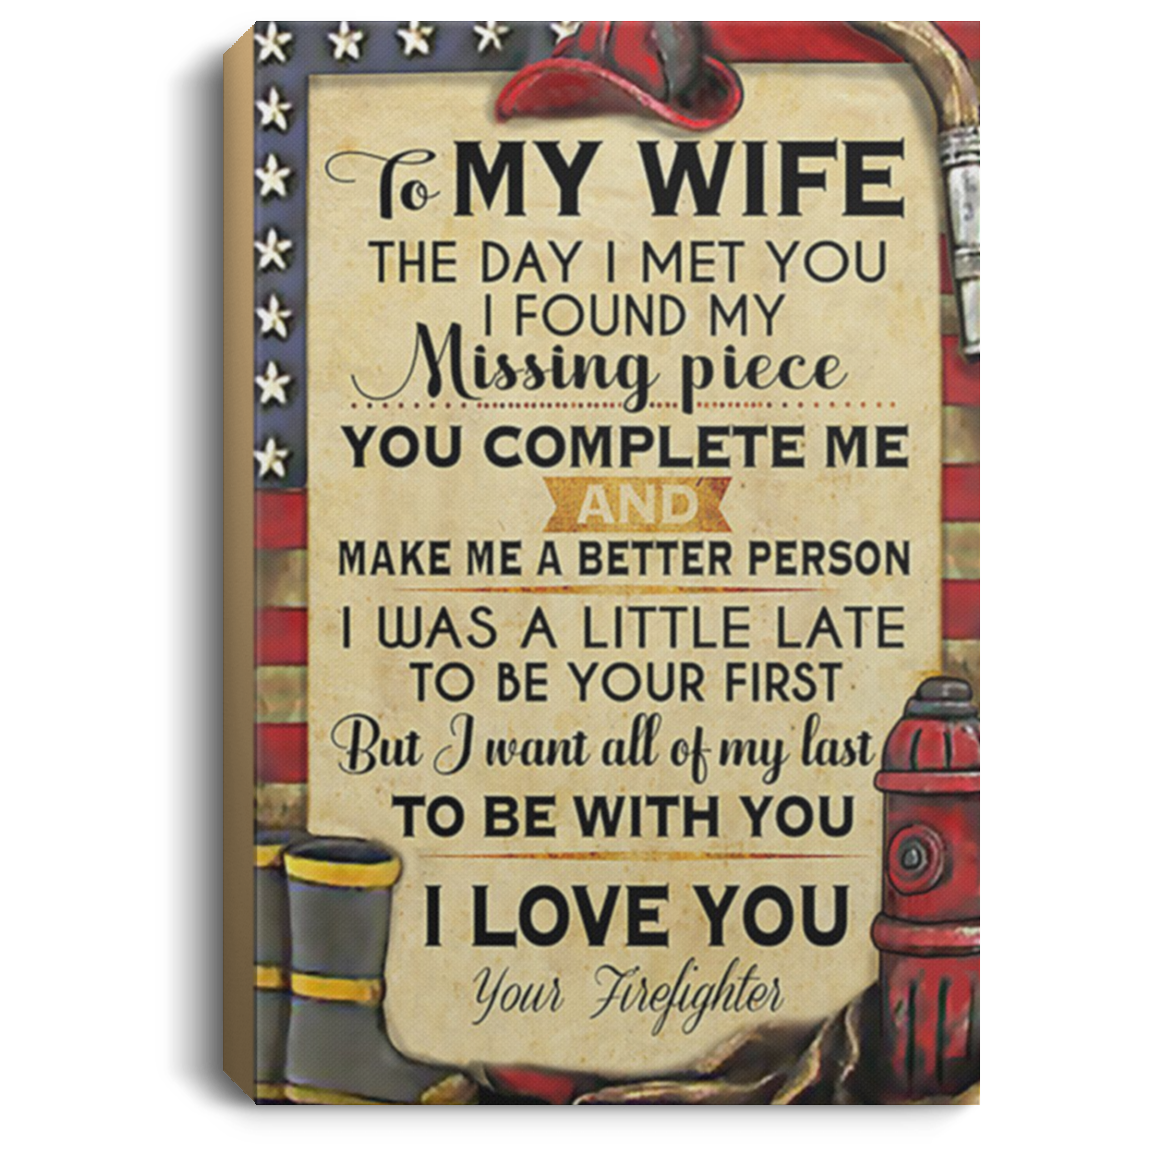 To MY WIFE
THE DAY I MET YOU
I FOUND MY
Missing piece
YOU COMPLETE ME
AND
MAKE ME A BETTER PERSON
I WAS A LITTLE LATE
TO BE YOUR FIRST
But I want all of my last
TO BE WITH YOU
I LOVE YOU
Your Firefighter